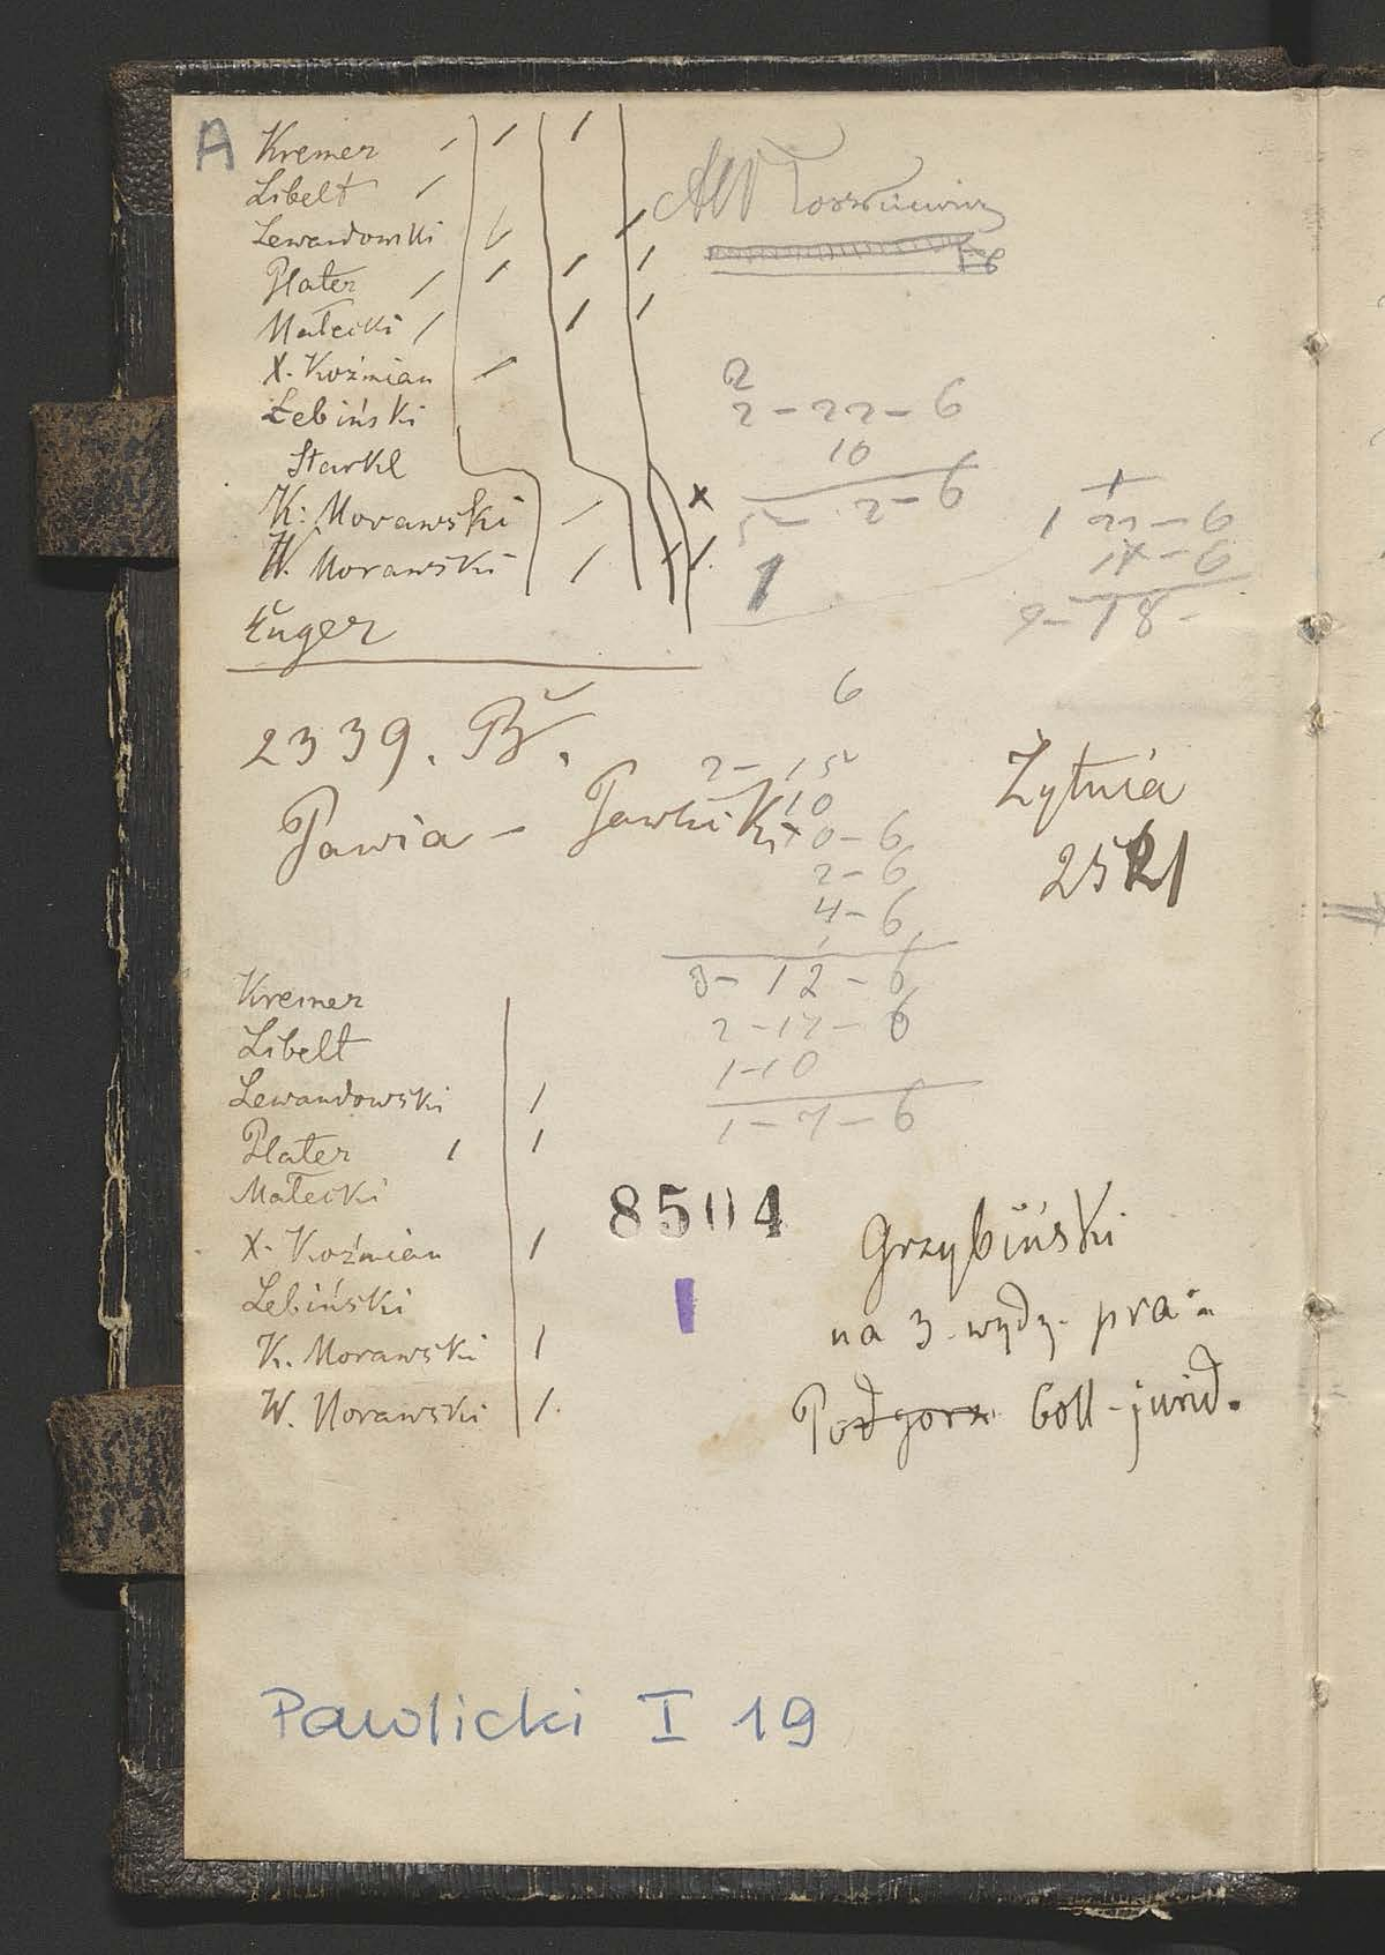 A
Kremer
Libelt
Lewandowski
Plater
Małecki
X. Koźmian
Łebiński
Starkl
K. Morawski
W. Morawski
Ługer
2
2-22-6
10
5- 2-6
1
1 22-6
17-6
9-18-
2339. B.
Pawia - Pawliki
6
2-15
10
10-6
2-6
4-6
3-12-6
2-17-6
1-10
1-7-6
Żytnia
2521
Kremer
Libelt
Lewandowski
Plater
Małecki
X. Koźmian
Łebiński
K. Morawski
W. Morawski
8504
Grzybiński
na 3. wydz. pra-
Podgorz Coll-jurid.
Pawlicki I 19